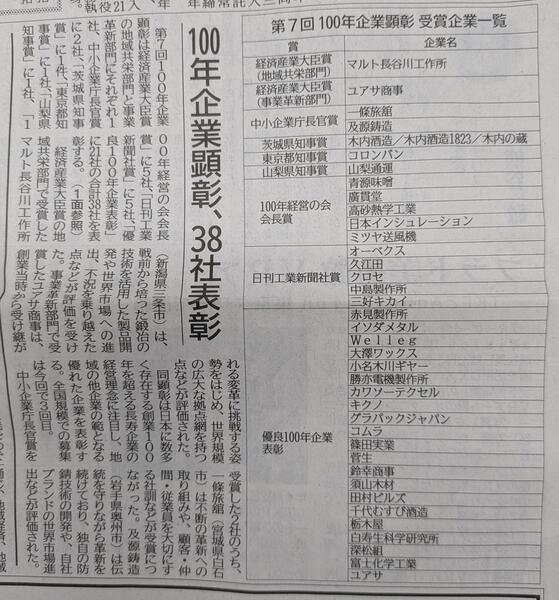 100年企業顕彰、38社表彰
第7回100年企業
顕彰は経済産業大臣賞
の地域共栄部門と事業
革新部門にそれぞれ1
社、中小企業庁長官賞
に2社、「茨城県知事
賞」に1件、「東京都知
事賞」に1社、「山梨県
知事賞」に1社、「1
00年経営の会会長
賞」に5社、「日刊工業
新聞社賞」に5社、「優
良100年企業表彰」
に21社の合計38社を表
彰する。（1面参照）
経済産業大臣賞の地
域共栄部門で受賞した
マルト長谷川工作所
（新潟県三条市）は、
戦前から培った鍛冶の
技術を活用した製品開
発や世界市場への進
出、不況を乗り越えた
点などが評価を受け
た。事業革新部門で受
賞したユアサ商事は、
創業当時から受け継が
れる変革に挑戦する姿
勢をはじめ、世界規模
の広大な拠点網を持つ
点などが評価された。
同顕彰は日本に数多
く存在する創業100
年を超える長寿企業の
経営理念に注目し、地
域の他企業の範となる
優れた企業を表彰す
る。全国規模での募集
は今回で3回目。
中小企業庁長官賞を
受賞した2社のうち、
一條旅館（宮城県白石
市）は不断の革新への
取り組みや、顧客・仲
間・従業員を大切にす
る社訓などが受賞につ
ながった。及源鋳造
（岩手県奥州市）は伝
統を守りながら革新を
続けており、独自の防
錆技術の開発や、自社
ブランドの世界市場進
出などが評価された。
第7回 100年企業顕彰 受賞企業一覧
賞 企業名
経済産業大臣賞
（地域共栄部門） マルト長谷川工作所
経済産業大臣賞
（事業革新部門） ユアサ商事
中小企業庁長官賞 一條旅館
及源鋳造
茨城県知事賞 木内酒造／木内酒造1823／木内の蔵
東京都知事賞 コロンバン
山梨県知事賞 山梨通運
100年経営の会
会長賞
青源味噌
廣貫堂
高砂熱学工業
日本インシュレーション
ミツヤ送風機
日刊工業新聞社賞
オーベクス
久江田
クロセ
中島製作所
三好キカイ
優良100年企業
表彰
赤見製作所
イソダメタル
Ｗｅｌｌｅｇ
大澤ワックス
小名木川ギヤー
勝亦電機製作所
カワソーテクセル
キクノ
グラパックジャパン
コムラ
篠田実業
菅生
鈴幸商事
須山木材
田村ビルズ
千代むすび酒造
栃木屋
白寿生科学研究所
深松組
富士化学工業
ユアサ